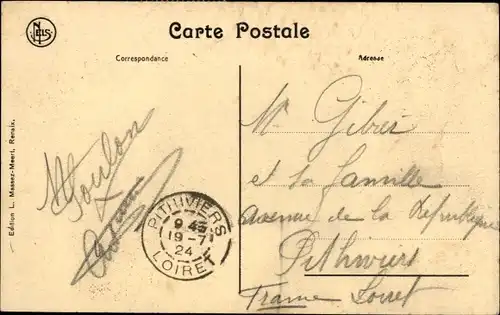 Carte Postale
Correspondance
Adresse
NELS
Edition L. Massez-Meert, Renaix.
Toulon
PITHIVIERS
9 45
19-7
24
LOIRET
Mr Gibier
et la famille
Avenue de la République
Pithiviers
France Loiret